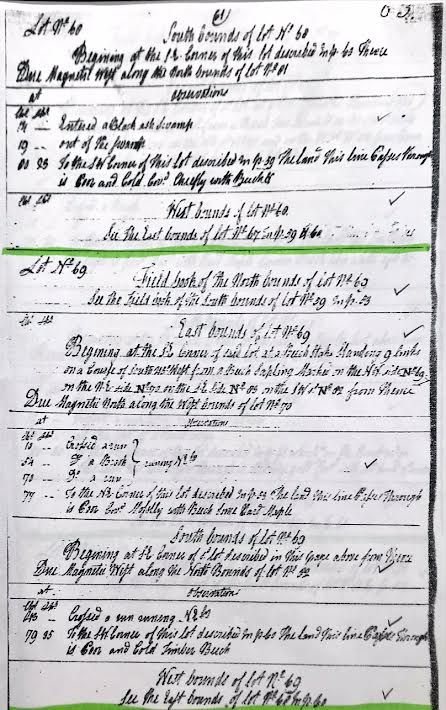 61
Lot No 60 South bounds of lot No 60
Begining at the S.E. Corner of this lot described in p. 63 Thence
Due Magnetic West along the North bounds of lot No 81
at observations
Chs Lks
14 -- Entered a Black ash swamp
19 -- out of the swamp
23 To the S.W. Corner of this Lot described in p. 59 The land this line Passes through
is Poor and Cold Covd Cheefly with Beech &
Chs Lks West bounds of lot No 60.
See the East bounds of lot No 67 in p. 59 & 60
Lot No 69 Field book of the North bounds of lot No 69
See the Field book of the South bounds of lot No 59 in p. 53
Chs Lks East bounds of lot No 69
Begining at the S.E. Corner of said lot at a Beech Stake Standing 9 links
on a Course of South West from a Beech Sapling Marked on the N.W. side No 69
on the N.E. side No 70 on the S.E. side No 83 on the S.W. do No 82 from Thence
Due Magnetic North along the West bounds of lot No 70
at observations
Chs Lks
10 -- Crossed a run
54 -- Do a Brook running
73 -- Do a run
77 -- To the N.E. Corner of this lot described in p. 53 The land this line Passes through
is Poor Covd Mostly with Beech Some Hard Maple
South bounds of lot No 69
Begining at S.E. Corner of sd lot described in this page above from Thence
Due Magnetic West along the North Bounds of lot No 82
at observations
Chs Lks
-- Crossed a run running
79 35 To the S.W. Corner of this lot described in p. 60 The land this line Passes through
is Poor and Cold Timber Beech
West bounds of lot No 69
See the East bounds of lot No 68 in p. 60